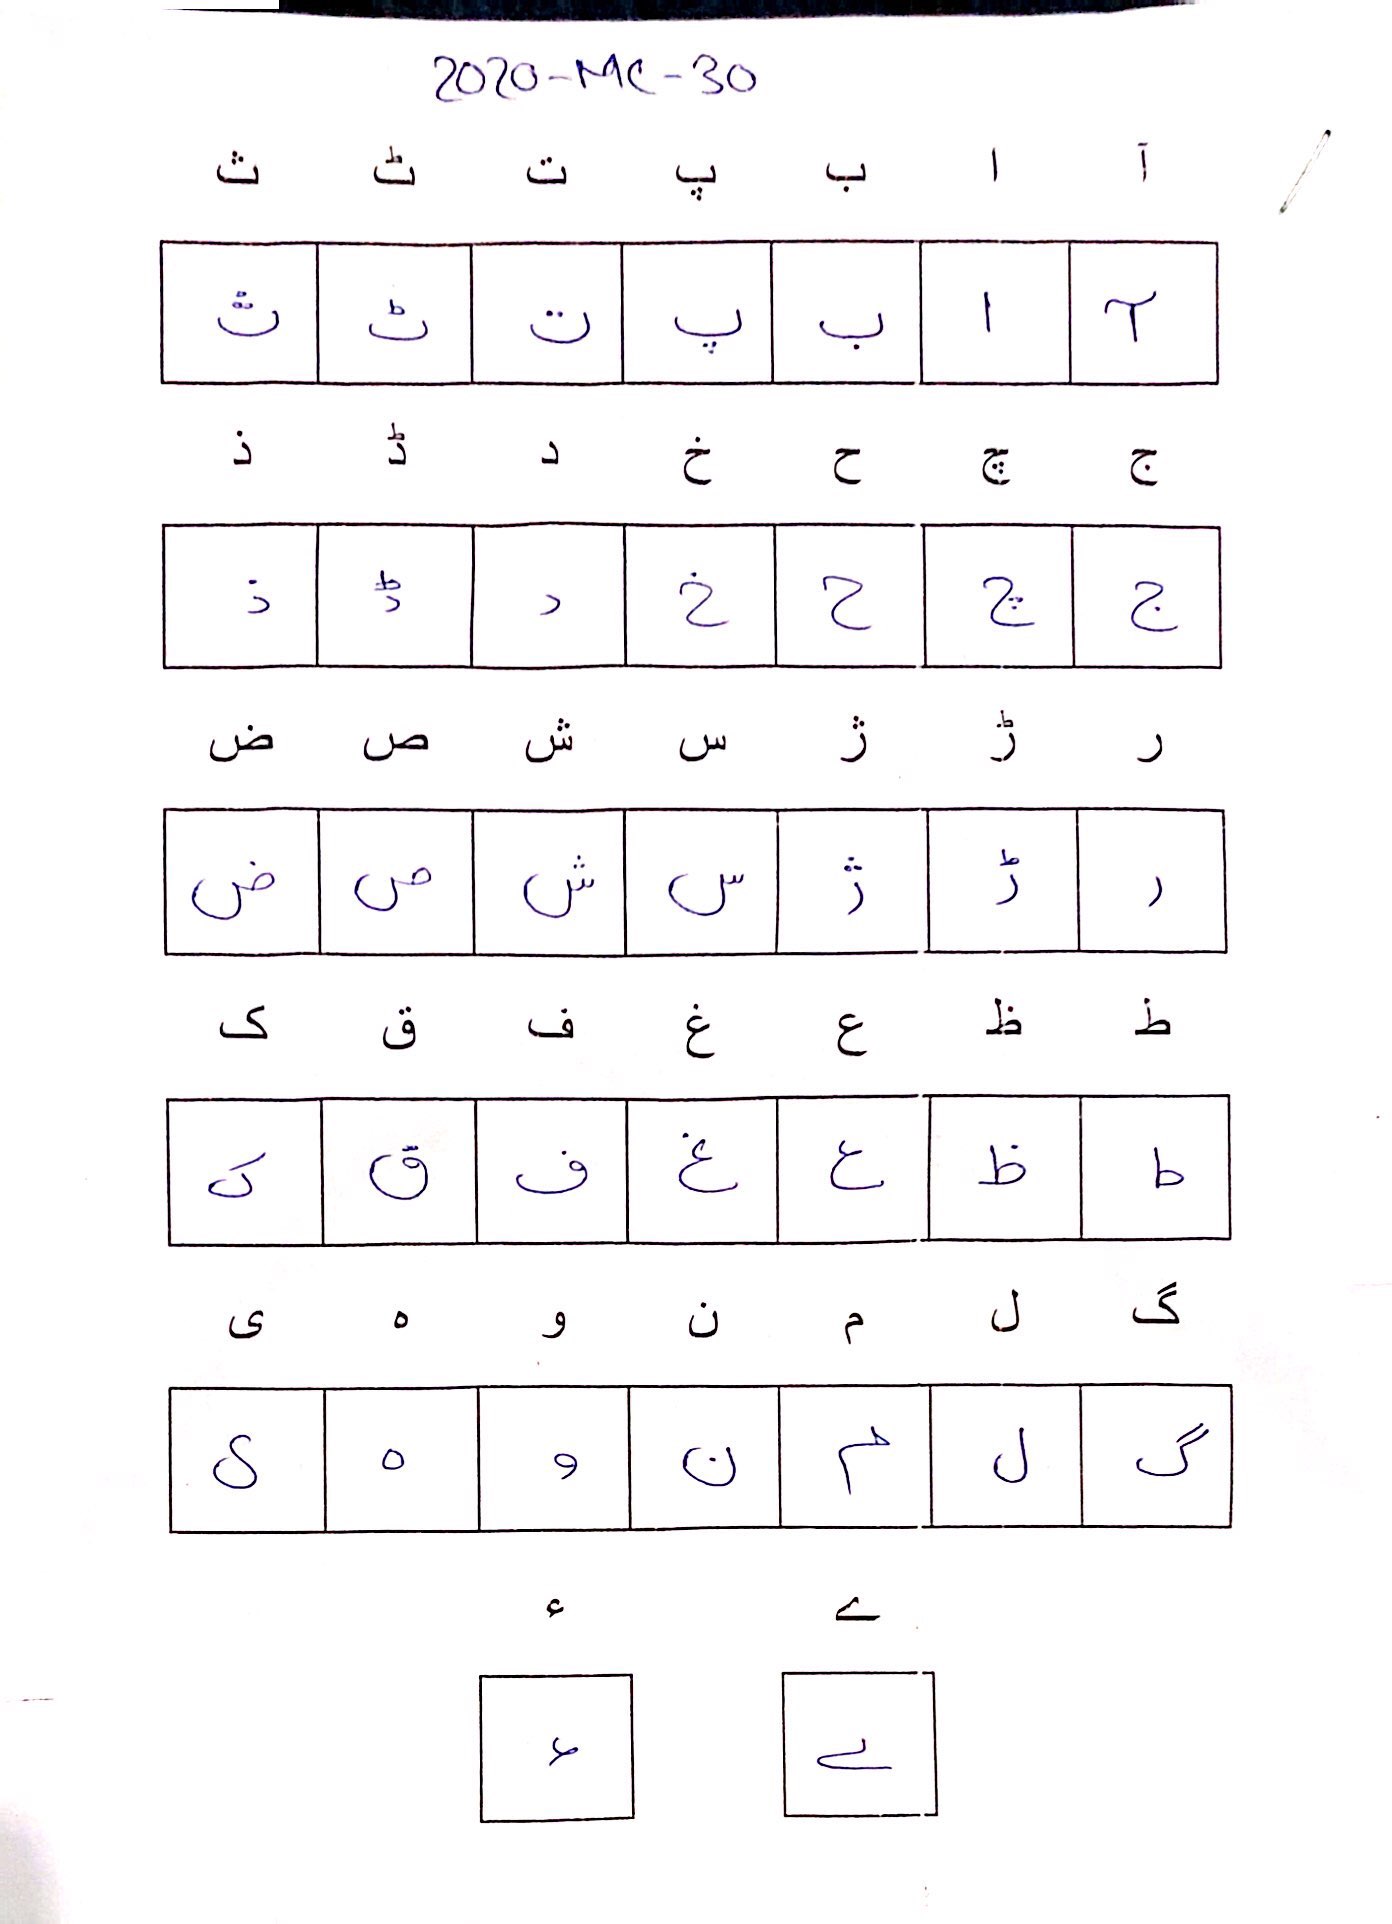 2020-MC-30
آ ا ب پ ت ٹ ث
آ ا ب پ ت ٹ ث
ج چ ح خ د ڈ ذ
ج چ ح خ د ڈ ذ
ر ڑ ژ س ش ص ض
ر ڑ ژ س ش ص ض
ط ظ ع غ ف ق ک
ط ظ ع غ ف ق ک
گ ل م ن و ہ ی
گ ل م ن و ہ ی
ے ء
ے ء